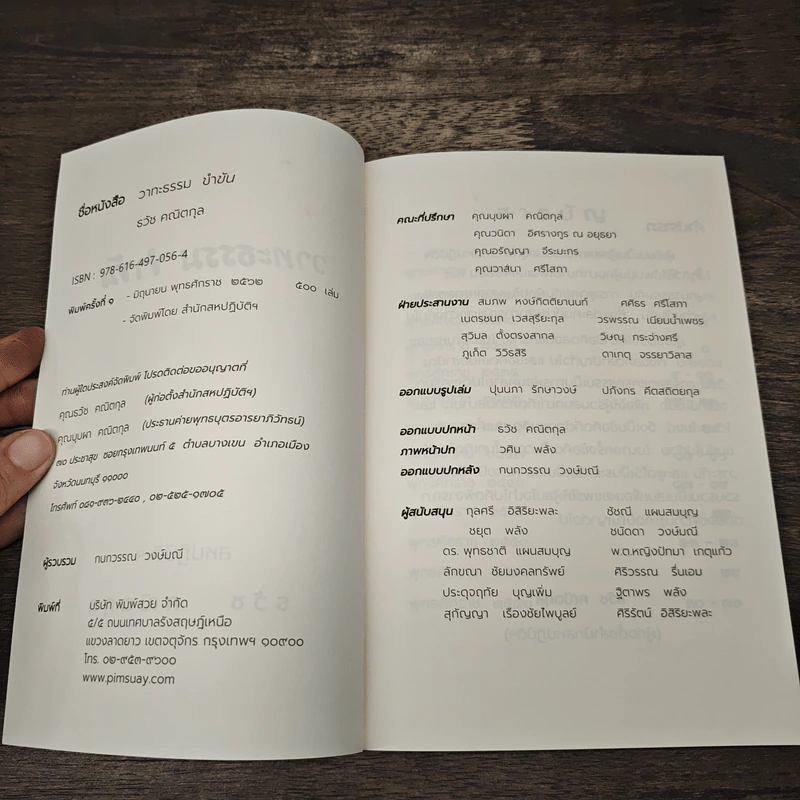 ชื่อหนังสือ วาทะธรรม ขำขัน
ธวัช คณิตกุล
ISBN : 978-616-497-056-4
พิมพ์ครั้งที่ ๑ - มิถุนายน พุทธศักราช ๒๕๖๒ ๕๐๐ เล่ม
- จัดพิมพ์โดย สำนักสหปฏิบัติฯ
ท่านผู้ใดประสงค์จัดพิมพ์ โปรดติดต่อขออนุญาตที่
คุณธวัช คณิตกุล (ผู้ก่อตั้งสำนักสหปฏิบัติฯ)
คุณบุบผา คณิตกุล (ประธานค่ายพุทธบุตรอารยาภิวัทธน์)
๗๐ ประชาสุข ซอยกรุงเทพนนท์ ๕ ตำบลบางเขน อำเภอเมือง
จังหวัดนนทบุรี ๑๑๐๐๐
โทรศัพท์ ๐๘๑-๙๓๖-๒๘๔๐ , ๐๒-๕๒๕-๑๗๐๕
ผู้รวบรวม กนกวรรณ วงษ์มณี
พิมพ์ที่ บริษัท พิมพ์สวย จำกัด
๕/๕ ถนนเทศบาลรังสฤษฎ์เหนือ
แขวงลาดยาว เขตจตุจักร กรุงเทพฯ ๑๐๙๐๐
โทร. ๐๒-๙๕๓-๙๖๐๐
www.pimsuay.com
คณะที่ปรึกษา คุณบุบผา คณิตกุล
คุณวนิดา อิศรางกูร ณ อยุธยา
คุณอรัญญา จีระมะกร
คุณวาสนา ศรีโสภา
ฝ่ายประสานงาน สมภพ หงษ์กิตติยานนท์ ศศิธร ศรีโสภา
เนตรชนก เวสสุริยะกุล วรพรรณ เนียมน้ำเพชร
สุวิมล ตั้งตรงสากล วิษณุ กระจ่างศรี
ภูเก็ต วิวิธสิริ ดาเกตุ จรรยาวิลาส
ออกแบบรูปเล่ม ปุนนภา รักษาวงษ์ ปภังกร คีตสถิตยกุล
ออกแบบปกหน้า ธวัช คณิตกุล
ภาพหน้าปก วศิน พลัง
ออกแบบปกหลัง กนกวรรณ วงษ์มณี
ผู้สนับสนุน กุลศรี อิสิริยะพละ ชัชณี แผนสมบุญ
ชยุต พลัง ชนัดดา วงษ์มณี
ดร. พุทธชาติ แผนสมบุญ พ.ต.หญิงปัทมา เกตุแก้ว
ลักขณา ชัยมงคลทรัพย์ ศิริวรรณ รื่นเอม
ประดุจฤทัย บุญเพิ่ม ฐิตาพร พลัง
สุกัญญา เรืองชัยไพบูลย์ ศิริรัตน์ อิสิริยะพละ